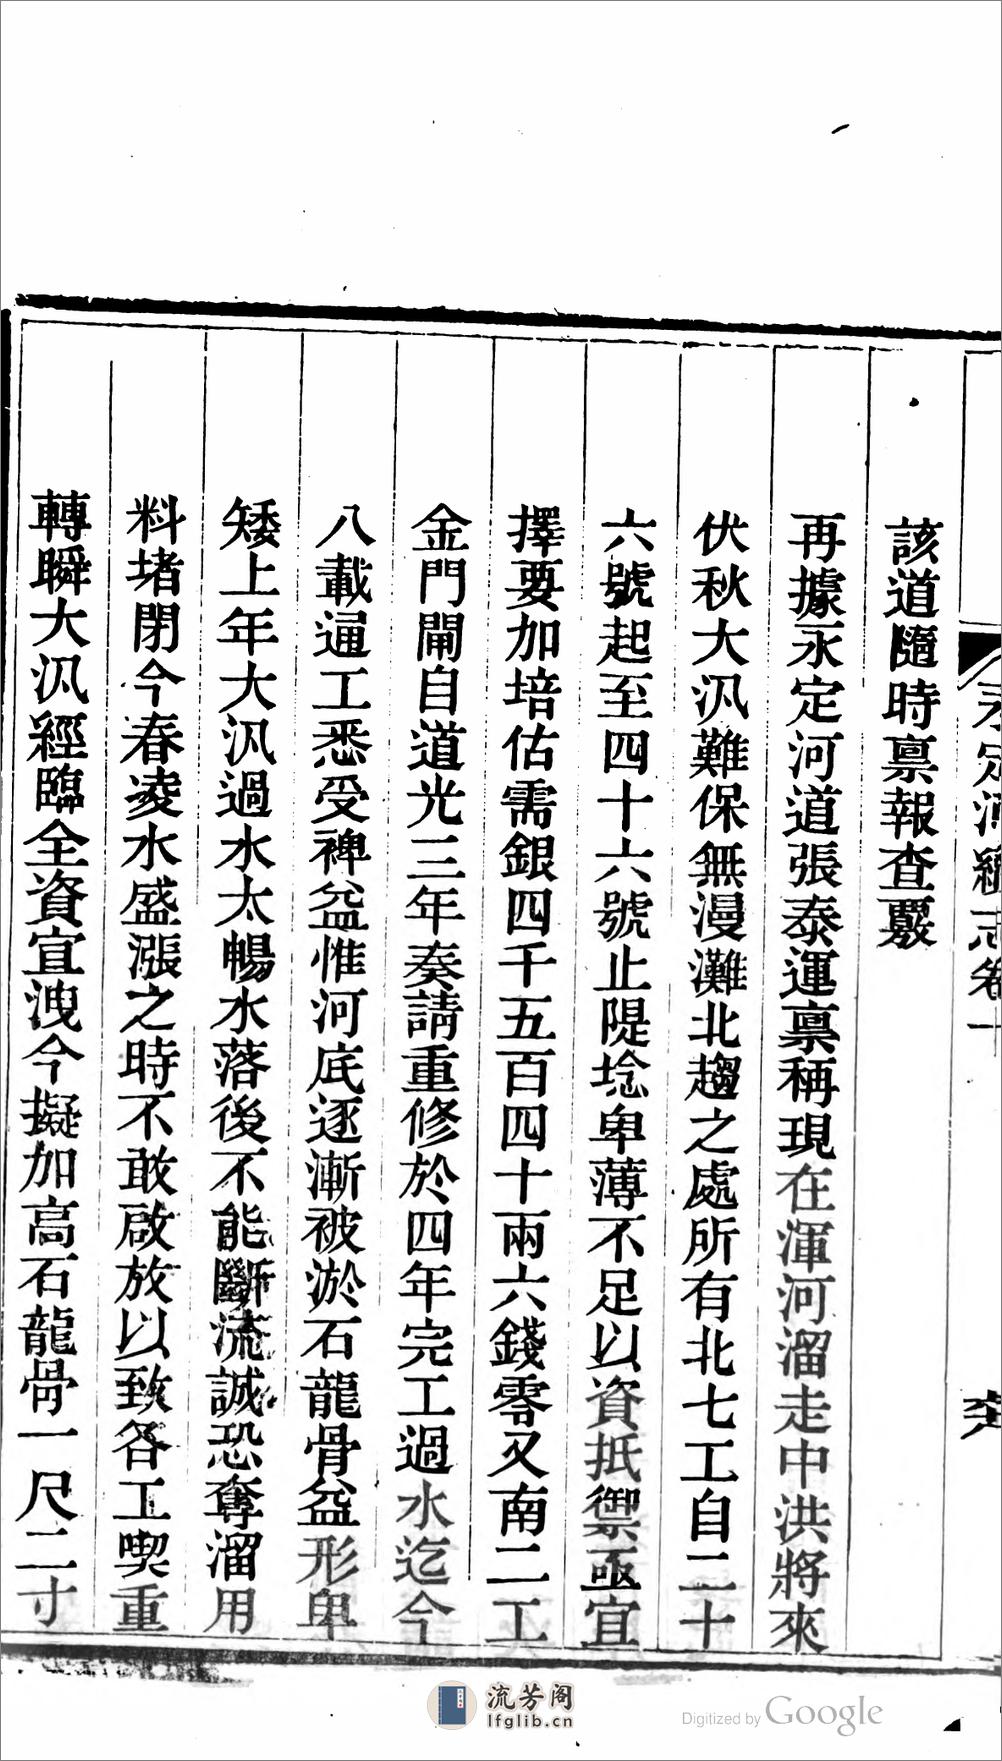 永定河續志卷十
該道隨時稟報查覈
再據永定河道張泰運稟稱現在渾河溜走中洪將來
伏秋大汛難保無漫灘北趨之處所有北七工自二十
六號起至四十六號止隄埝卑薄不足以資抵禦亟宜
擇要加培估需銀四千五百四十兩六錢零又南二工
金門閘自道光三年奏請重修於四年完工過水迄今
八載逼工悉受裨益惟河底逐漸被淤石龍骨益形卑
矮上年大汛過水太暢水落後不能斷流誠恐奪溜用
料堵閉今春凌水盛漲之時不敢啟放以致各工喫重
轉瞬大汛經臨全資宣洩今擬加高石龍骨一尺二寸
流芳阁
lfglib.cn
Digitized by Google